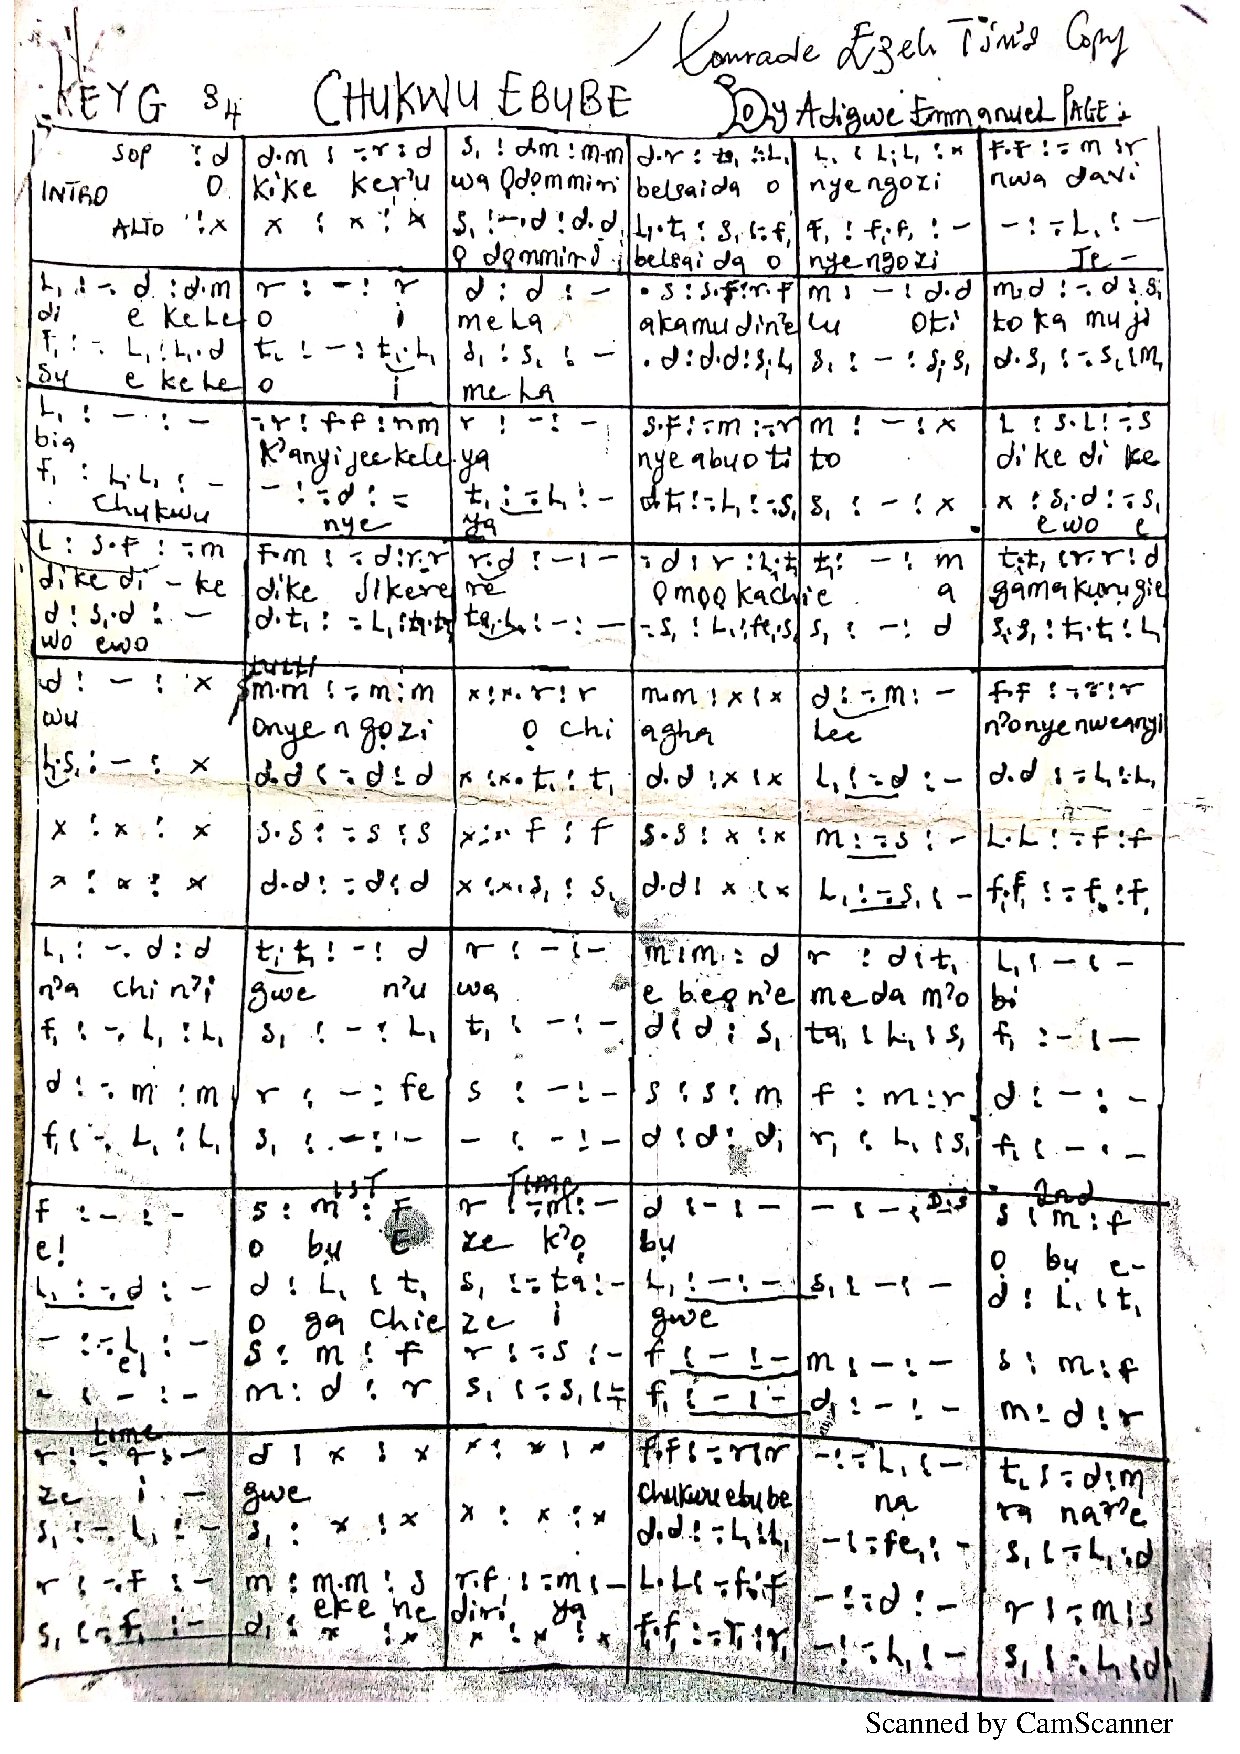 Ezeh Tim's Copy
KEY G 3/4 CHUKWU EBUBE By Adigwe Emmanuel PAGE 1
SOP :d d.m : -.r : d s, : d.m : m.m d.r : t, :.L, L, : L,.L, : x f.f : -.m : r
INTRO O kike ker'u wa Ọdọmmiri belsaida o nye ngozi nwa davi
ALTO :x x : x : x s, : -.d : d.d L,.t, : s, :.f, f, : f,.f, : - - : -.L, : -
Ọ dọmmiri belsaida o nye ngozi Je-
L, : -.d : d.m r : - : r d : d : - .s : s.f : r.f m : - : d.d m.d : -.d : s,.s,
di e kele o i mela akamu din'e lu oti to ka mu ji
f, : -.L, : L,.d t, : - : t,.L, s, : s, : - .d : d.d : s,.L, s, : - : s,.s, d.s, : -.s, : m,
su e kele o i mela
L, : - : - -.r : f.f : r.m r : - : - s.f : -.m : -.r m : - : x L : s.L : -.s
bia k'anyi jee kele ya nye abuo ti to di ke di ke
f, : L,.L, : - - : -.d : - t, : -.L, : - d.t, : -.L, : -.s, s, : - : x x : s,.d : -.s,
Chukwu nye ya ewo e
L : s.f : -.m f.m : -.d : r.r r.d : - : - -.d : r : L,.t, t, : - : m t,.t, : r.r : d
dike di - ke dike sikere re Ọmọọ kachie a gama kwugie
d : s,.d : - d.t, : -.L, : t,.t, ta,.L, : - : - -.s, : L, : fe,.s, s, : - : d s,.s, : t,.t, : L,
wo ewo
tutti
d : - : x m.m : -.m : m x : x.r : r m.m : x : x d : -.m : - f.f : -.r : r
wu onye ngọzi ọ chi agha lee n'onye nweanyi
L,.s, : - : x d.d : -.d : d x : x.t, : t, d.d : x : x L, : -.d : - d.d : -.L, : L,
x : x : x s.s : -.s : s x : x.f : f s.s : x : x m : -.s : - L.L : -.f : f
x : x : x d.d : -.d : d x : x.s, : s, d.d : x : x L, : -.s, : - f,.f, : -.f, : f,
L, : -.d : d t,.t, : - : d r : - : - m : m : d r : d : t, L, : - : -
n'a chi n'i gwe n'u wa e beọ n'e me da m'o bi
f, : -.L, : L, s, : - : L, t, : - : - d : d : s, ta, : L, : s, f, : - : -
d : -.m : m r : - : fe s : - : - s : s : m f : m : r d : - : -
f, : -.L, : L, s, : - : - - : - : - d : d : d, r, : L, : s, f, : - : -
1ST Time 2nd
f : - : - s : m : f r : -.m : - d : - : - - : - : D.S s : m : f
e! o bụ E ze k'ọ bụ ọ bụ e-
L, : -.d : - d : L, : t, s, : -.ta, : - L, : - : - s, : - : - d : L, : t,
o ga chie ze i gwe
- : -.L, : - s : m : f r : -.s : - f : - : - m : - : - s : m : f
e!
- : - : - m : d : r s, : -.s, : - f, : - : - d, : - : - m : d : r
time
r : -.r : - d : x : x x : x : x f.f : -.r : r - : -.L, : - t, : -.d : m
ze i - gwe chukwu ebube na ra nar'e
s, : -.L, : - s, : x : x x : x : x d.d : -.L, : L, - : -.fe, : - s, : -.L, : d
r : -.f : - m : m.m : s r.f : -.m : - L.L : -.f : f - : -.d : - r : -.m : s
eke ne diri ya
s, : -.f, : - d, : x : x x : x : x f,.f, : -.r, : r, - : -.L, : - s, : -.L, : d
Scanned by CamScanner